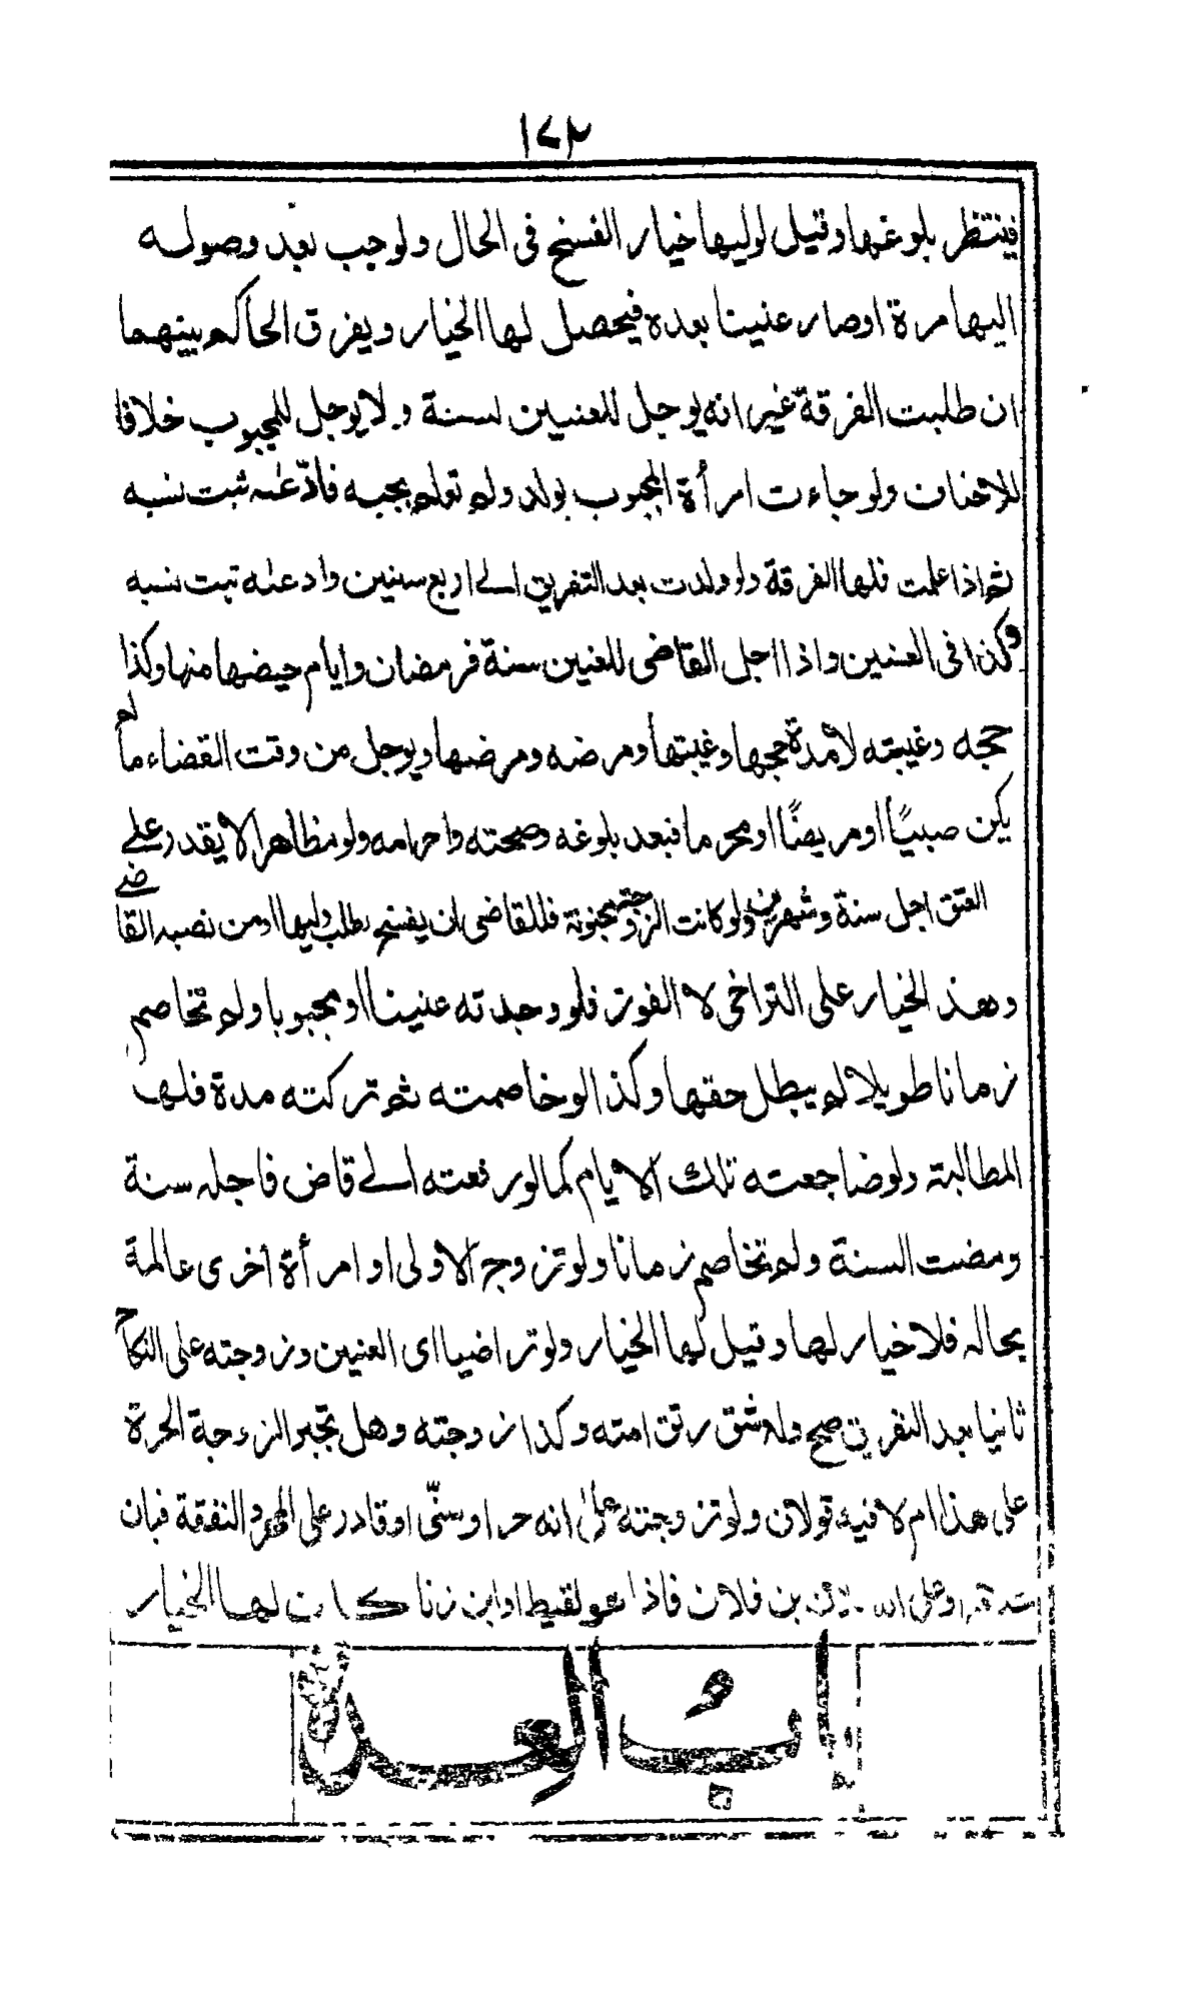 ١٧٢
فينتظر بلوغها وقيل لوليها خيار الفسخ فى الحال ولوجب بعد وصوله
اليها مرة اوصار عنينا بعده فيحصل لها الخيار ويفرق الحاكم بينهما
ان طلبت الفرقة غير انه يوجل للعنين لسنة ولا يوجل للمجبوب خلافا
للاحناف ولو جاءت امرأة المجبوب بولد ولم تعلم بجبه فادّعته ثبت نسبه
ثم اذا علمت فلها الفرقة ولو ولدت بعد التفريق الے اربع سنين وادعته ثبت نسبه
وكذا فى العنين واذا اجل القاضى للعنين سنة فرمضان وايام حيضها منها وكذا
حجه وغيبته لا مدة حجها وغيبتها ومرضه ومرضها ويوجل من وقت القضاء ما لم
يكن صبيًا او مريضًا او محرما فبعد بلوغه وصحته واحرامه ولو مظاهرا لا يقدر علے
العتق اجل سنة وشهرين ولو كانت الزوجة مجنونة فللقاضى ان يفسخ بطلب وليها او من نصبه القاضے
وهذ الخيار على التراخى لا الفور فلو وجدته عنينا او مجبوبا ولم تخاصم
زمانا طويلا لم يبطل حقها وكذا لو خاصمته ثم تركته مدة فلها
المطالبة ولو ضاجعته تلك الايام كما لو رفعته الے قاض فاجله سنة
ومضت السنة ولم تخاصم زمانا ولو تزوج الاولى او امرأة اخرى عالمة
بحاله فلا خيار لها وقيل لها الخيار ولو تراضيا اى العنين وزوجته على النكاح
ثانيا بعد التفريق صح وله شق رتق امته وكذا زوجته وهل تجبر الزوجة الحرة
على هذا ام لا فيه قولان ولو تزوجته على انه حر او سنّى او قادر على المهر والنفقة فبان
بن فلان فاذا هو لقيط او ابن زنا كان لها الخيار
بابُ العِدة